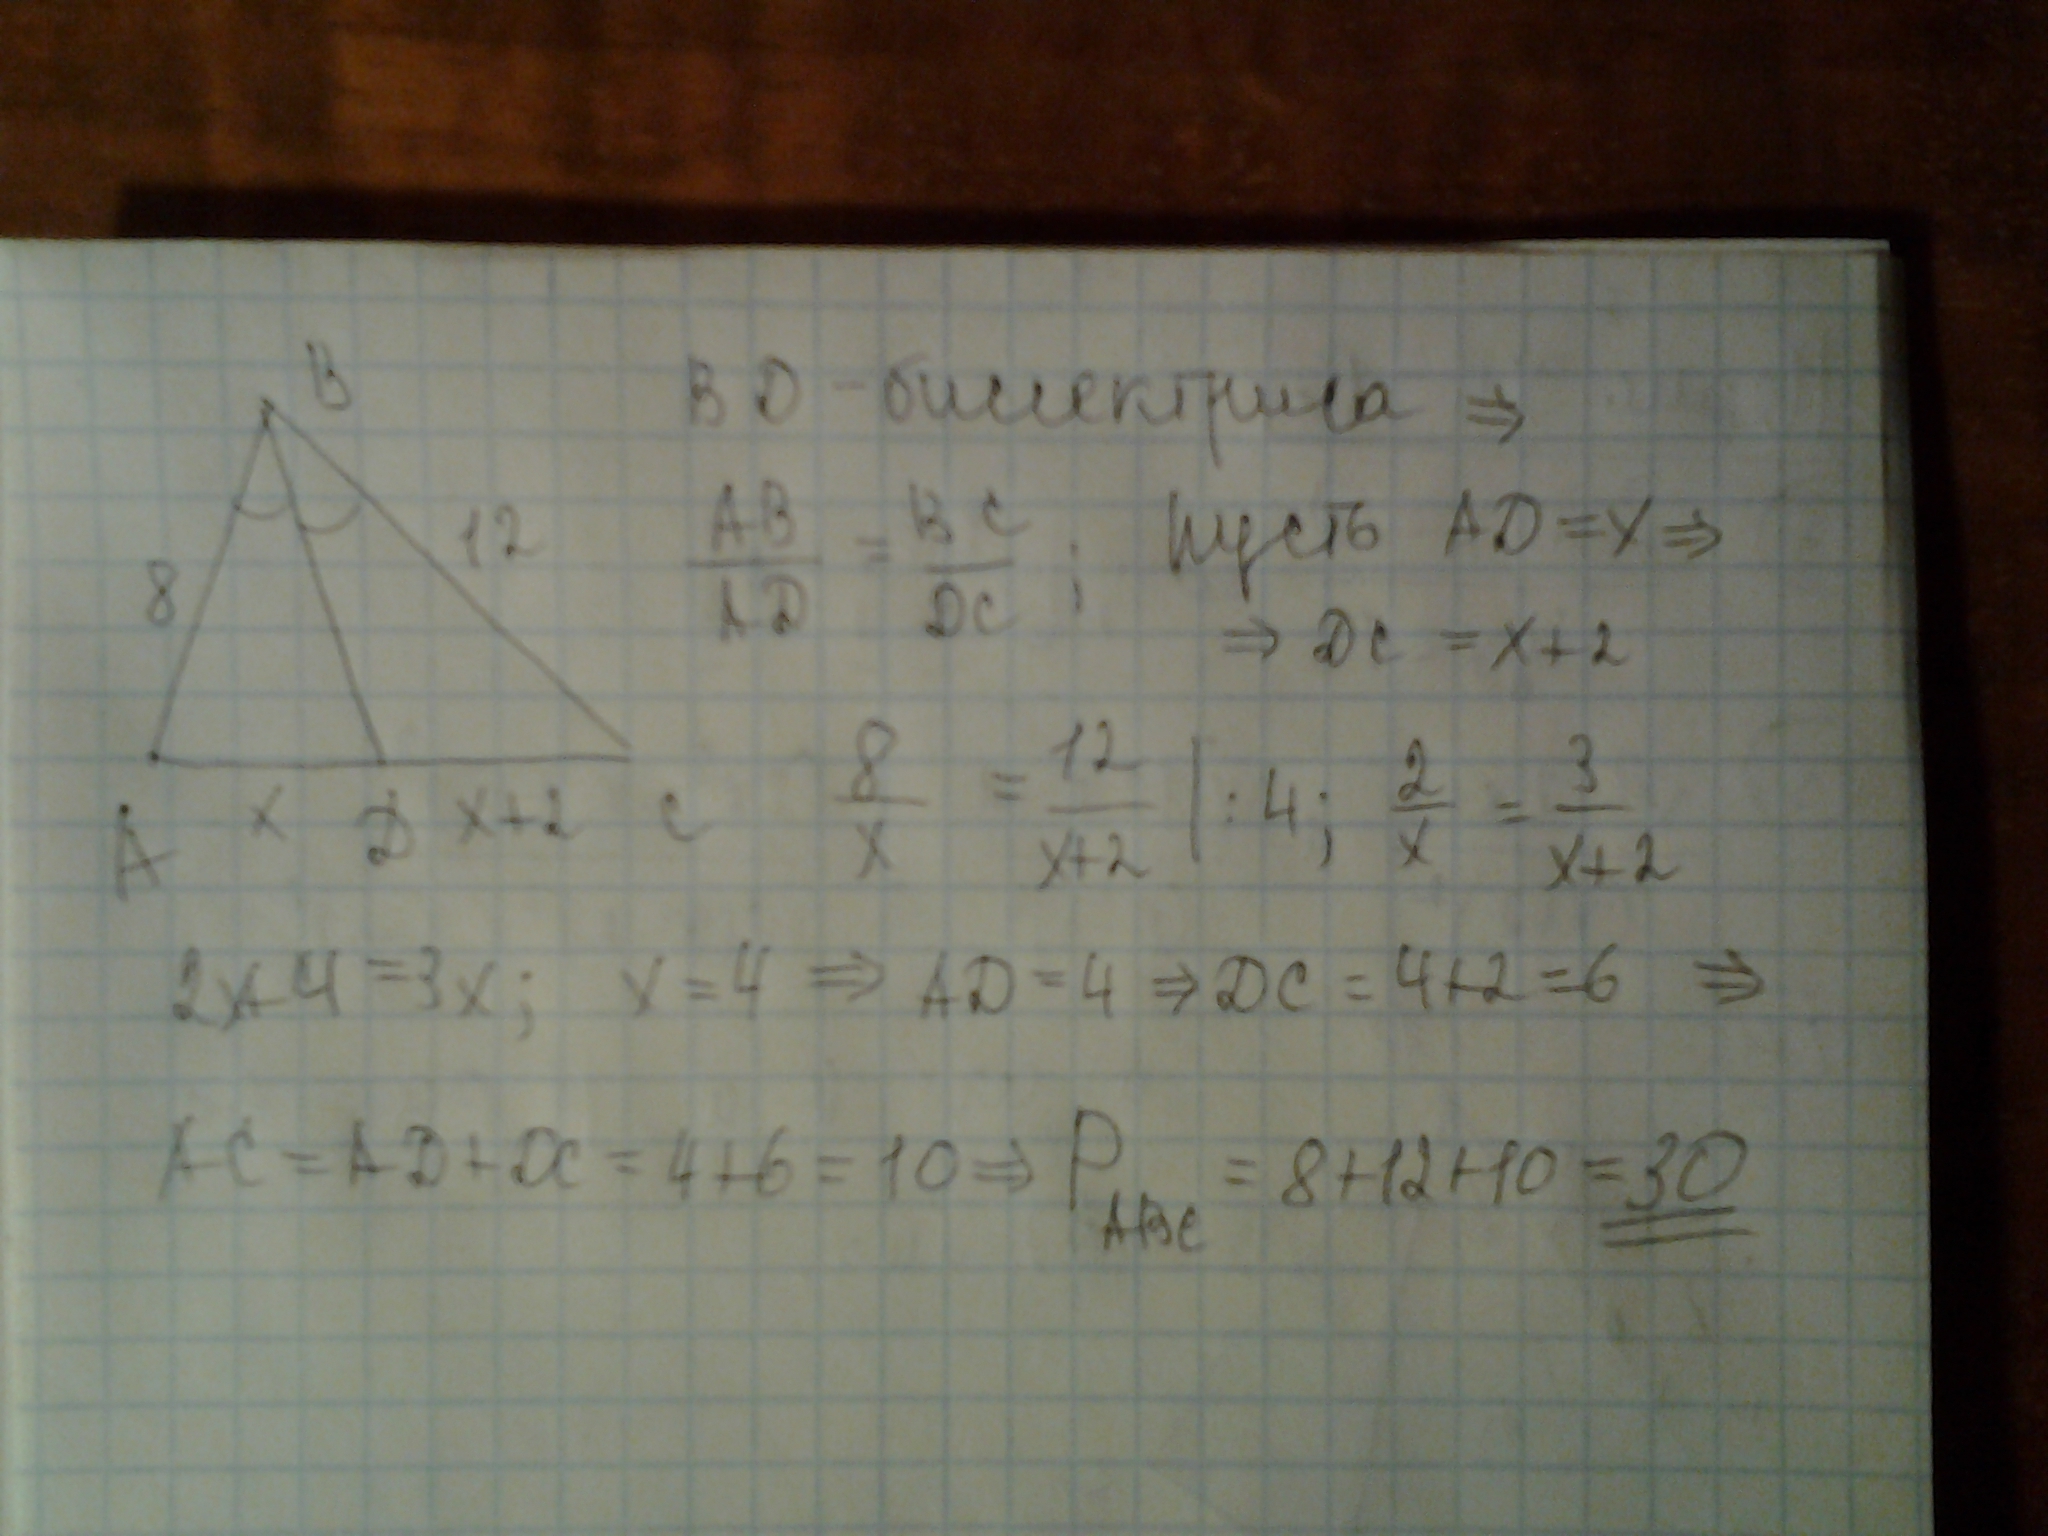 B
8
12
A x D x+2 C
BD - биссектриса ⇒
AB/AD = BC/DC; Пусть AD = x ⇒
⇒ DC = x+2
8/x = 12/(x+2) | : 4; 2/x = 3/(x+2)
2x+4 = 3x; x = 4 ⇒ AD = 4 ⇒ DC = 4+2 = 6 ⇒
AC = AD + DC = 4+6 = 10 ⇒ P ABC = 8+12+10 = 30